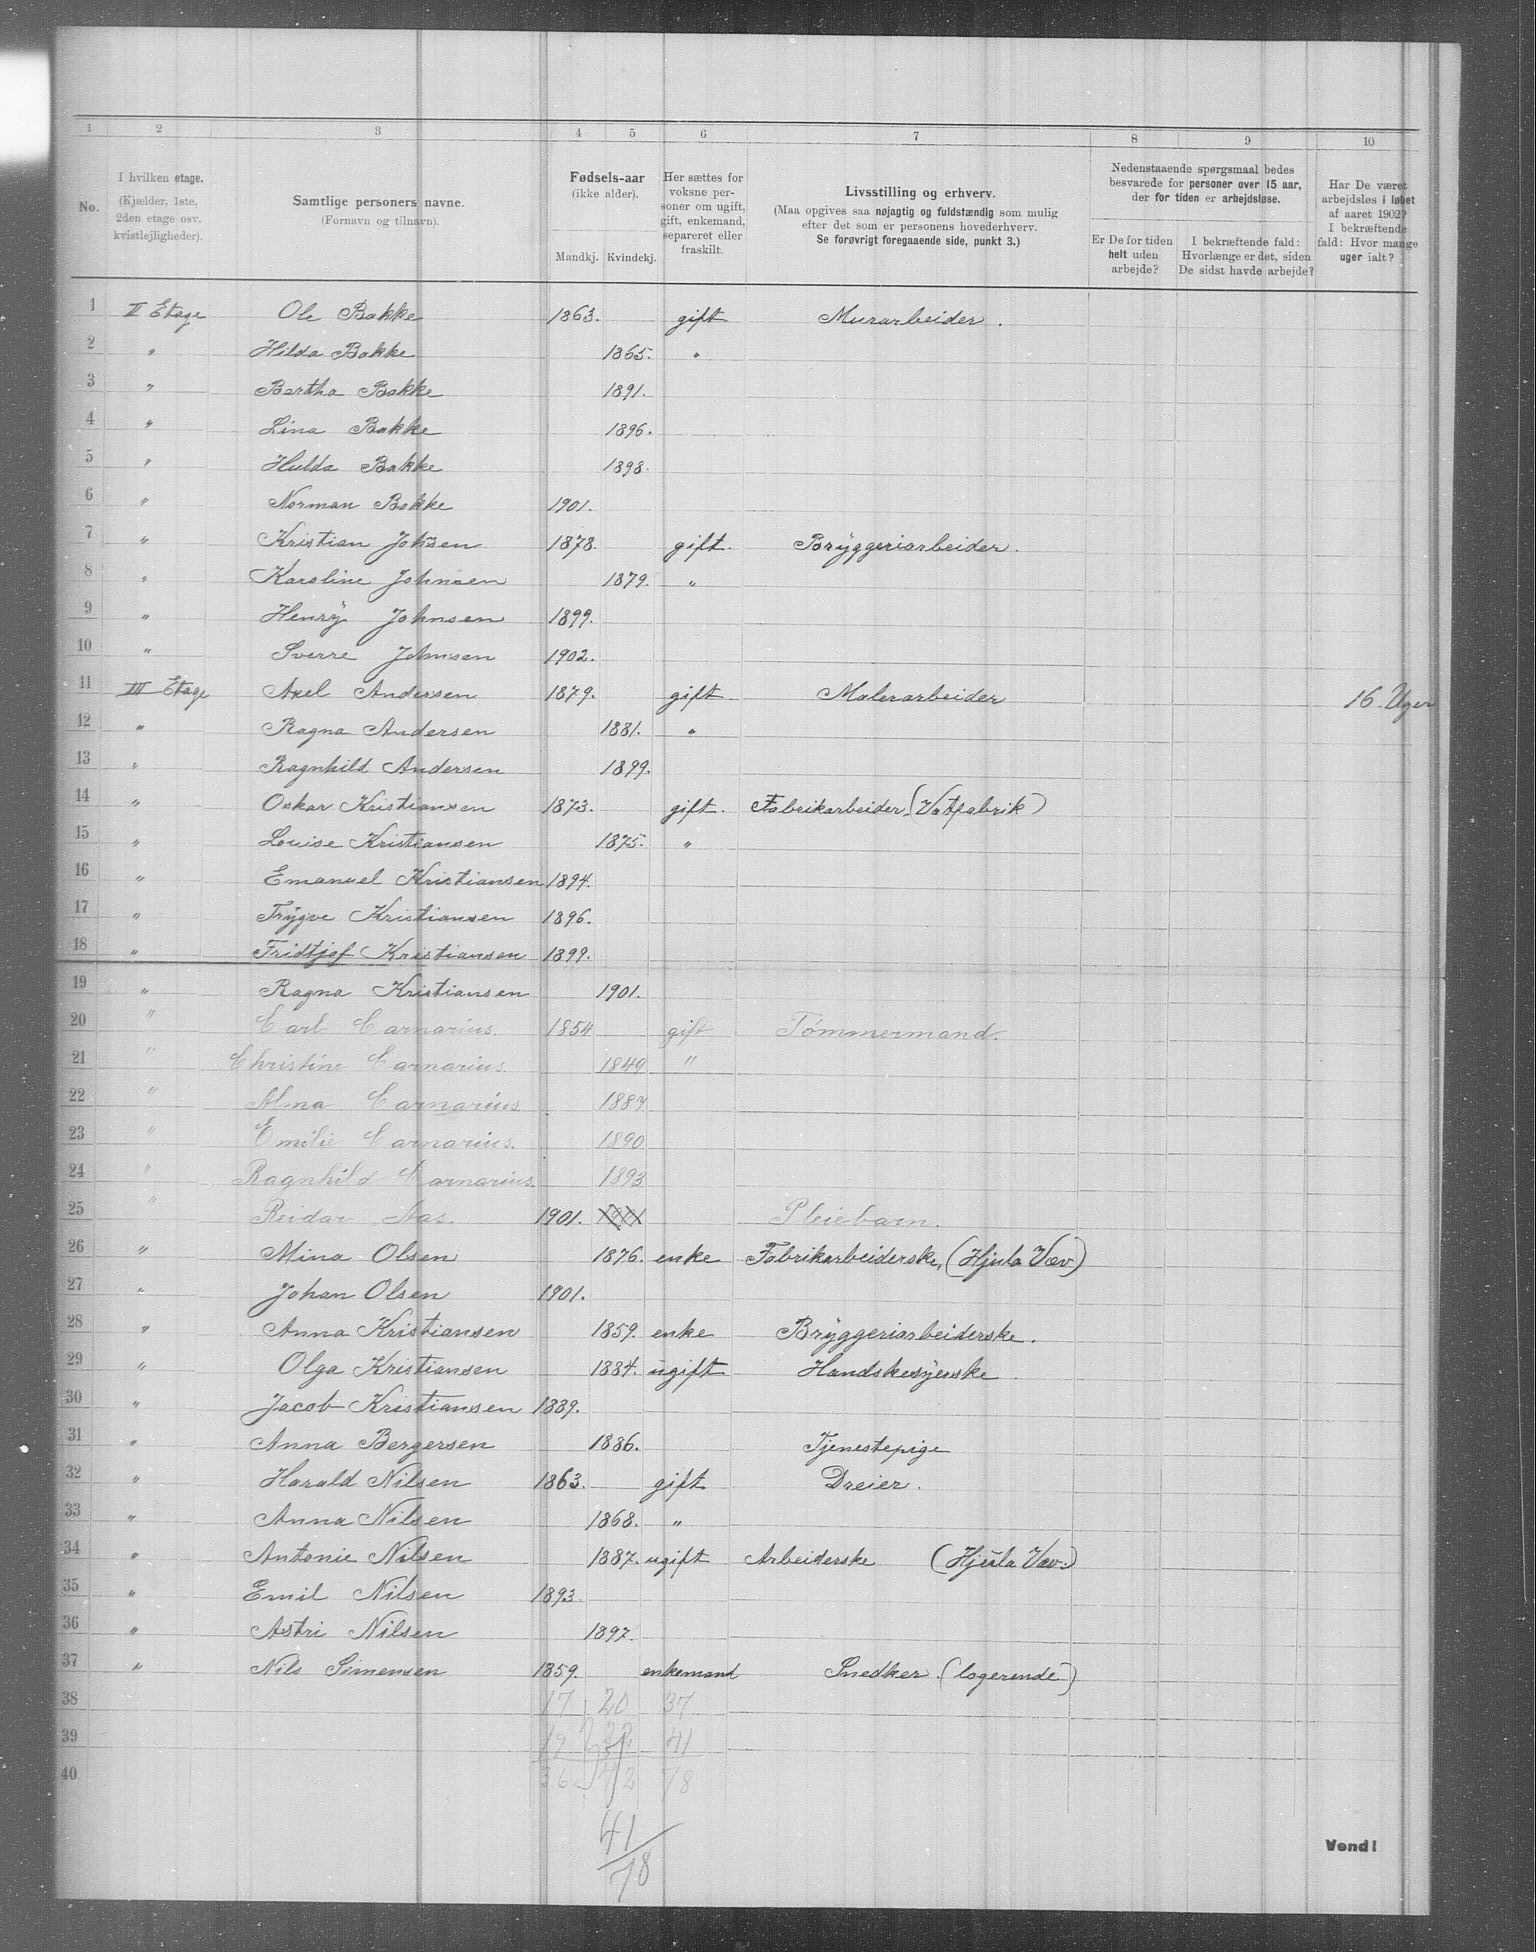 1 2 3 4 5 6 7 8 9 10
No.
I hvilken etage.
(Kjælder, 1ste,
2den etage osv.
kvistlejligheder).
Samtlige personers navne.
(Fornavn og tilnavn).
Fødsels-aar
(ikke alder).
Mandkj. Kvindekj.
Her sættes for
voksne per-
soner om ugift,
gift, enkemand,
separeret eller
fraskilt.
Livsstilling og erhverv.
(Maa opgives saa nøjagtig og fuldstændig som mulig
efter det som er personens hovederhverv.
Se forøvrigt foregaaende side, punkt 3.)
Nedenstaaende spørgsmaal bedes
besvarede for personer over 15 aar,
der for tiden er arbejdsløse.
Er De for tiden
helt uden
arbejde?
I bekræftende fald:
Hvorlænge er det, siden
De sidst havde arbejde?
Har De været
arbejdsløs i løbet
af aaret 1902?
I bekræftende
fald: Hvor mange
uger ialt?
1 II Etage Ole Bakke 1863. gift Murarbeider.
2 " Hilda Bakke 1865. "
3 " Bertha Bakke 1891.
4 " Lina Bakke 1896.
5 " Hulda Bakke 1898.
6 " Norman Bakke 1901.
7 " Kristian Johsen 1878. gift. Bryggeriarbeider.
8 " Karoline Johnsen 1879. "
9 " Henry Johnsen 1899.
10 " Sverre Johnsen 1902.
11 III Etage Axel Andersen 1879. gift Malerarbeider 16 Uger
12 " Ragna Andersen 1881. "
13 " Ragnhild Andersen 1899.
14 " Oskar Kristiansen 1873. gift. Fabrikarbeider, (Vatfabrik)
15 " Louise Kristiansen 1875. "
16 " Emanuel Kristiansen 1894.
17 " Trygve Kristiansen 1896.
18 " Fridtjof Kristiansen 1899.
19 " Ragna Kristiansen 1901.
20 " Carl Carnarius. 1854 gift Tømmermand.
21 " Christine Carnarius. 1849 "
22 " Alma Carnarius. 1887
23 " Emilie Carnarius. 1890
24 " Ragnhild Carnarius. 1893
25 " Reidar Aas. 1901. 1901 Pleiebarn.
26 " Mina Olsen 1876. enke Fabrikarbeiderske, (Hjula Væv)
27 " Johan Olsen 1901.
28 " Anna Kristiansen 1859. enke Bryggeriarbeiderske.
29 " Olga Kristiansen 1884. ugift Handskesyerske
30 " Jacob Kristiansen 1889.
31 " Anna Bergersen 1886. Tjenestepige
32 " Harald Nilsen 1863. gift Dreier.
33 " Anna Nilsen 1868. "
34 " Antonie Nilsen 1887. ugift Arbeiderske (Hjula Væv.)
35 " Emil Nilsen 1893.
36 " Astri Nilsen 1897.
37 " Nils Simensen 1859. enkemand Snedker (logerende)
38 17 20 37
39 19 22 41
40 36 42 78
41/78
Vend!